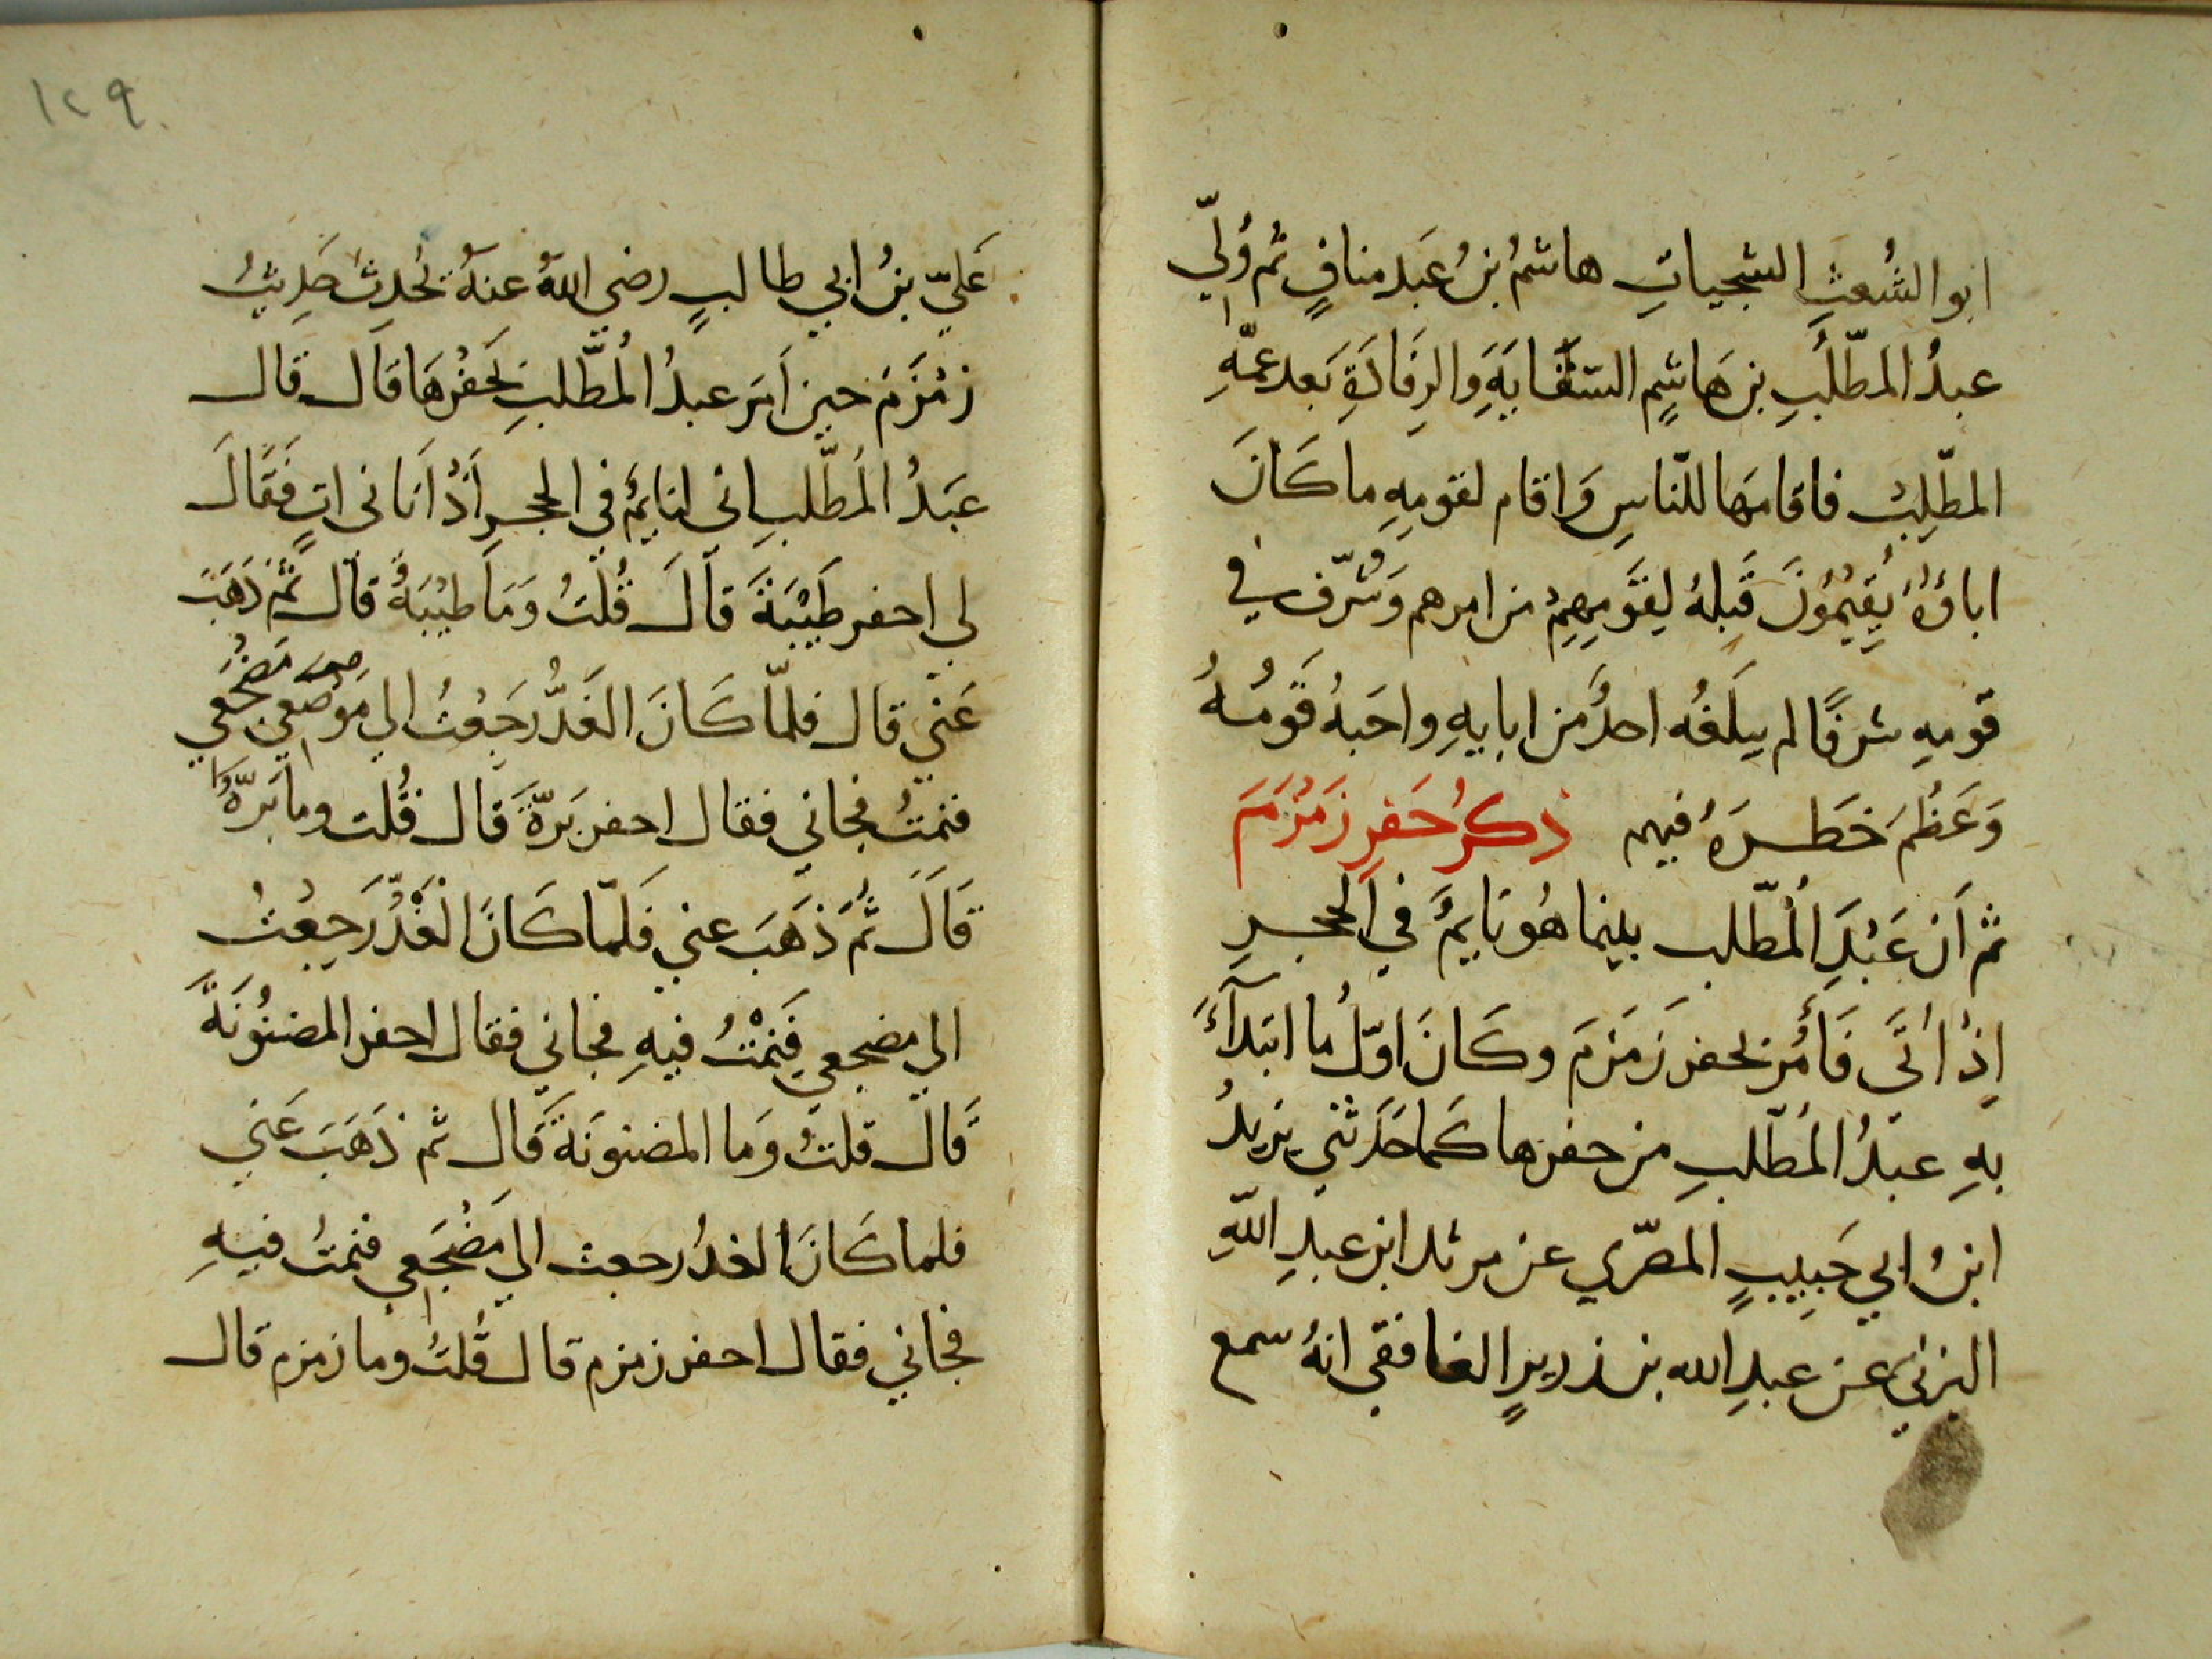 ابو الشُعثِ الشجياتِ هاشمُ بنُ عَبد منافٍ ثم وُلِّي
عبدُ المطّلبِ بن هَاشِمٍ السّقَايَةِ وَالرِفَادَةِ بَعد عمّهِ
المطّلِبُ فاقامهَا للنّاسِ وَاقام لقومِهِ ما كَانَ
اباؤهُ يُقِيمُونَ قَبلهُ لِقَومِهِمْ من امرهم وَشَرّف في
قومِهِ شرفًا لم يبلغهُ احدٌ من ابايهِ واحَبهُ قَومُهُ
وَعَظُمَ خَطَرَهُ فيهم ذكرُ حَفرِ زَمْزَمَ
ثم اَن عَبْدَ المُطّلب بينما هُو نَايمٌ في الحجرِ
اِذْ اُتَى فَأُمر بحفر زَمَزمَ وكَانَ اوّلُ ما ابتدآءَ
بهِ عبدُ المُطّلبِ من حفرها كما حَدَثني يزيدُ
ابنُ ابي حَبِيبٍ المصّري عن مرثد ابن عبدِ اللّهِ
اليزني عن عبدِ الله بن زريرٍ الغافقي انهُ سمع
١٢٩
عَليّ بنُ ابي طالبٍ رضي اللهُ عنهُ يُحَدِثُ حَدِيثُ
زمْزَمَ حين اَمَر عبدُ المُطَّلبِ بحَفْرهَا قَال قال
عَبدُ المُطّلبِ انى لنايمٌ في الحجرِ اَذْ اَتَانى اتٍ فَقَالَ
لي احفر طَيْبَةَ قَالَ قُلتُ وَمَا طَيْبَةُ قال ثُمَّ ذَهَبَ
عَنّي قال فلمّا كَانَ الغَدُّ رَجَعْتُ الي مَوضعي مَضْجَعي
فنمتُ فجاني فقال احفر بَرّةَ قَال قُلت وما بَرّةُ
قَالَ ثُمَ ذَهَبَ عني فَلَمّا كَانَ الْغَدُّ رَجَعْتُ
الي مضجعي فَنِمْتُ فيهِ فجاني فقال احفر المضنُونَةَ
قَال قلتُ وَما المضنونَةَ قَال ثم ذَهَبَ عَني
فلما كَانَ الغدُ رجعت الي مَضْجَعي فنمتُ فيهِ
فجاني فقال احفر زمزم قال قُلتُ وما زمزم قال